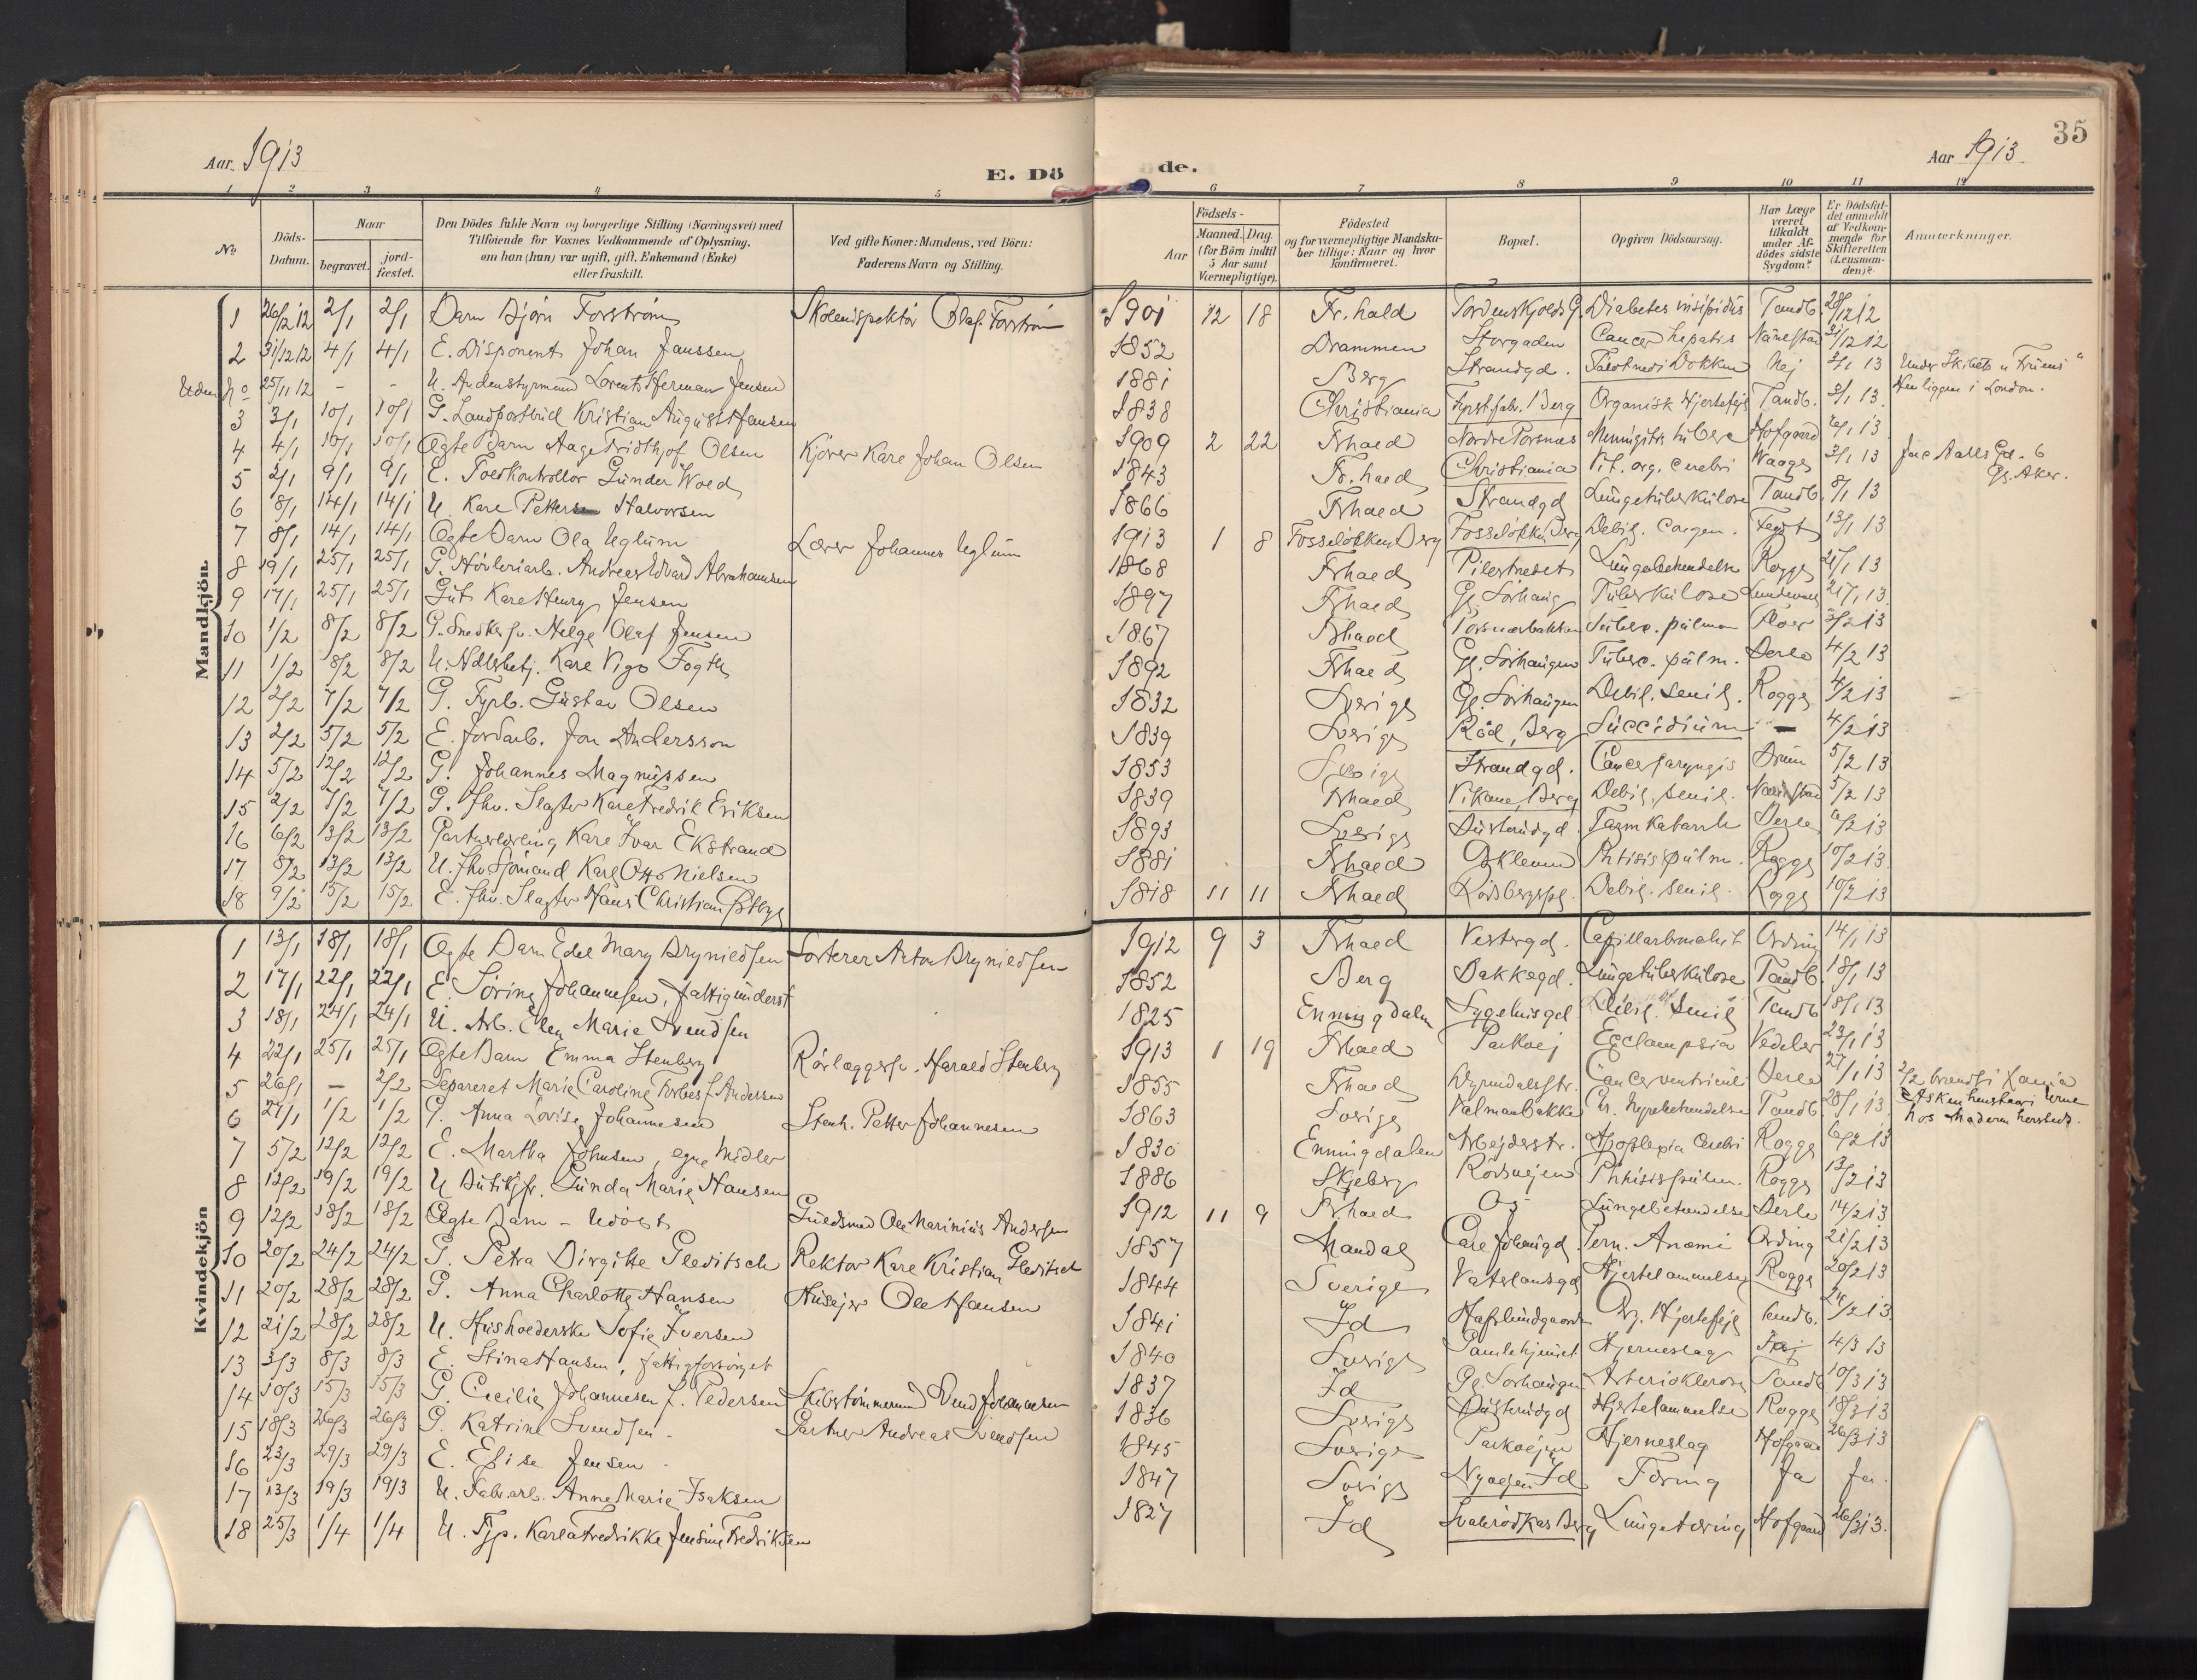 35
Aar 1913
E. Döde.
Aar 1913
1 2 3 4 5 6 7 8 9 10 11 12
No
Döds-Datum.
Naar begravet. jordfæstet.
Den Dödes fulde Navn og borgerlige Stilling (Næringsvei) med Tilföiende for Voxnes Vedkommende af Oplysning, om han (hun) var ugift, gift, Enkemand (Enke) eller fraskilt.
Ved gifte Koner: Mandens, ved Börn: Faderens Navn og Stilling.
Födsels- Aar Maaned. Dag. (for Börn indtil 5 Aar samt Værnepligtige).
Födested og for værnepligtige Mandskaber tillige: Naar og hvor konfirmeret.
Bopæl.
Opgiven Dödsaarsag.
Har Læge været tilkaldt under Afdödes sidste Sygdom?
Er Dödsfaldet anmeldt af Vedkommende for Skifteretten (Lensmanden)?
Anmærkninger.
Mandkjön.
1 26/12 12 2/1 2/1 Barn Björn Forström Skoleinspektör Olaf Forström 1901 12 18 Fr.hald Tordenskjolds G. Diabetes insipidus Tandb. 28/12 12
2 31/12 12 4/1 4/1 E. Disponent Johan Janssen 1852 Drammen Storgaden Cancer hepatis 31/12 12
Uden No 25/11 12 - - U. Andenstyrmand Lorents Herman Jensen 1881 Berg Strandgd. Faldt ned i Dokken Nej 2/1 13 Under Skibets Henliggen i London.
3 3/1 10/1 10/1 G. Landpostbud Kristian August Hansen 1838 Christiania Fyrst.fabr. Berg Organisk Hjertefejl Tandb. 3/1 13
4 4/1 10/1 10/1 Ægte Barn Aage Fridthjof Olsen Kjörer Karl Johan Olsen 1909 2 22 Frhald Nordre Torsnes Meningitis tuberc Hofgaard 6/1 13
5 2/1 9/1 9/1 E. Toldkontrollör Gunder Wold 1843 Fr.hald Christiania Vit. org. cerebri Waage 3/1 13 Jac Aalls Gd. 6 Gs. Aker.
6 8/1 14/1 14/1 U. Karl Petter Halvorsen 1866 Frhald Strandgd Lungetuberkulose Tandb. 8/1 13
7 8/1 14/1 14/1 Ægte Barn Ola Uglum Lærer Johannes Uglum 1913 1 8 Fosselökken Berg Fosselökken Berg Debil. congen. 13/1 13
8 19/1 25/1 25/1 G. Hövleriarb. Andreas Edvard Abrahamsen 1868 Frhald Pilestredet Lungebetendelse Rogge 21/1 13
9 17/1 25/1 25/1 Gut Karl Henry Jensen 1897 Frhald Gl. Sörhaug Tuberkulose 21/1 13
10 1/2 8/2 8/2 G. Snedkersv. Helge Olaf Jensen 1867 Frhald Torsnæsbakken Tuberc. pulmon 3/2 13
11 1/2 8/2 8/2 U. Karl Vigo Fogth 1892 Frhald Gl. Sörhaugen Tuberc. pulm. Derle 4/2 13
12 2/2 7/2 7/2 G. Fyrb. Gustav Olsen 1832 Sverige Gl. Sörhaugen Debil. senil. Rogge 4/2 13
13 2/2 5/2 5/2 E. Jordarb. Jon Andersson 1839 Sverige Röd, Berg Succidium - 4/2 13
14 5/2 12/2 12/2 G. Johannes Magnussen 1853 Sverige Strandgd. Cancer laryngis 5/2 13
15 2/2 7/2 7/2 G. fhv. Slagter Karl Fredrik Eriksen 1839 Frhald Vikane, Berg Debil. senil. 5/2 13
16 6/2 13/2 13/2 Gartnerlærling Karl Ivar Ekstrand 1893 Sverige Busterudgd. Tarmkatarrh Derle 6/2 13
17 8/2 13/2 13/2 U. fhv. Sjömand Karl Otto Nielsen 1881 Frhald Phtisis pulm. Rogge 10/2 13
18 9/2 15/2 15/2 E. fhv. Slagter Hans Christian Östbye 1818 11 11 Frhald Rödsbergspl. Debil. senil. Rogge 10/2 13
Kvindekjön
1 13/1 18/1 18/1 Ægte Barn Edel Mary Bryniedsen Sorterer Anton Bryniedsen 1912 9 3 Frhald Vestergd. Capillarbronchit Ording 14/1 13
2 17/1 22/1 22/1 E. Sörine Johannesen, fattigunderst 1852 Berg Bakkegd. Lungetuberkulose Tandb. 18/1 13
3 18/1 24/1 24/1 U. Arb. Elen Marie Svendsen 1825 Enningdalen Sygehusgd Debil. Senil Tandb 18/1 13
4 22/1 25/1 25/1 Ægte Barn Emma Stenberg Rörlæggersv. Harald Stenberg 1913 1 19 Frhald Parkvej Ecclampsia Vedeler 23/1 13
5 26/1 - 2/2 Separeret Marie Caroline Forbes f. Andersen 1855 Frhald Cancer ventriculi Derle 27/1 13 2/2 brændt i Xania Asken hensat i Urne hos
6 27/1 1/2 1/2 G. Anna Lovise Johannesen Stenh. Petter Johannesen 1863 Sverige Valmanbakke Chr. Nyrebetendelse Tandb. 28/1 13
7 5/2 12/2 12/2 E. Martha Johnsen, egne Midler 1830 Enningdalen Arbejderstr. Apoplexia Cerebri Rogge 6/2 13
8 12/2 19/2 19/2 U. Butikjfr. Gunda Marie Hansen 1886 Skjeberg Rödsvejen Phtisis pulm. Rogge 13/2 13
9 12/2 18/2 18/2 Ægte Barn - Udöbt Guldsmed Ole Marinius Andersen 1912 11 9 Frhald Os Lungebetendelse Derle 14/2 13
10 20/2 24/2 24/2 G. Petra Birgitte Gleditsch Rektor Karl Kristian Gleditsch 1857 Mandal Carl Johangd. Pern. Anæmi Ording 21/2 13
11 20/2 28/2 28/2 G. Anna Charlotte Hansen Husejer Ole Hansen 1844 Sverige Vaterlandsgd Hjertelammelse Rogge 20/2 13
12 21/2 28/2 28/2 U. Husholderske Sofie Iversen 1841 Id Hafslundgaarden Org. Hjertefejl Tandb. 24/2 13
13 3/3 8/3 8/3 E. Stina Hansen, fattigforsörget 1840 Sverige Gamlehjemmet Hjerneslag Nej 4/3 13
14 10/3 15/3 15/3 G. Cecilie Johannesen f. Pedersen Skibstömmermand Johannesen 1837 Id Gl. Sörhaugen Arteriosklerose Tandb 10/3 13
15 18/3 26/3 26/3 G. Katrine Svendsen Gartner Andreas Svendsen 1836 Sverige Busterudgd Hjertelammelse Rogge 18/3 13
16 23/3 29/3 29/3 E. Elise Jensen 1845 Sverige Parkvejen Hjerneslag Hofgaard 26/3 13
17 13/3 19/3 19/3 U. Fabr.arb. Anne Marie Isaksen 1847 Sverige Id Tæring Ja Ja.
18 25/3 1/4 1/4 U. Tjp. Karla Fredrikke Jensine Fredriksen 1827 Id Svalerödkas Berg Lungetæring Hofgaard 26/3 13.